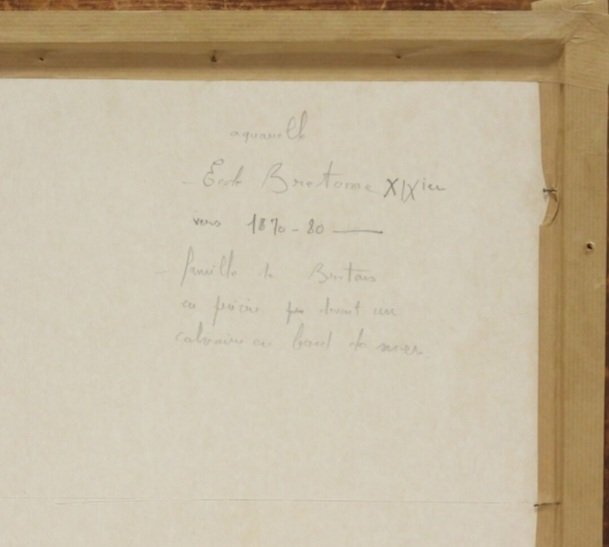 aquarelle
- Ecole Bretonne XIXième
vers 1870-80 —
- famille de Bretons
en prière devant un
calvaire au bord de mer